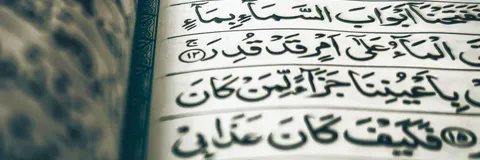 فَفَتَحْنَا أَبْوَابَ السَّمَاءِ بِمَاءٍ
الْمَاءُ عَلَىٰ أَمْرٍ قَدْ قُدِرَ ۚ ﴿١٢﴾
بِأَعْيُنِنَا جَزَاءً لِّمَن كَانَ
﴿١٥﴾ فَكَيْفَ كَانَ عَذَابِي